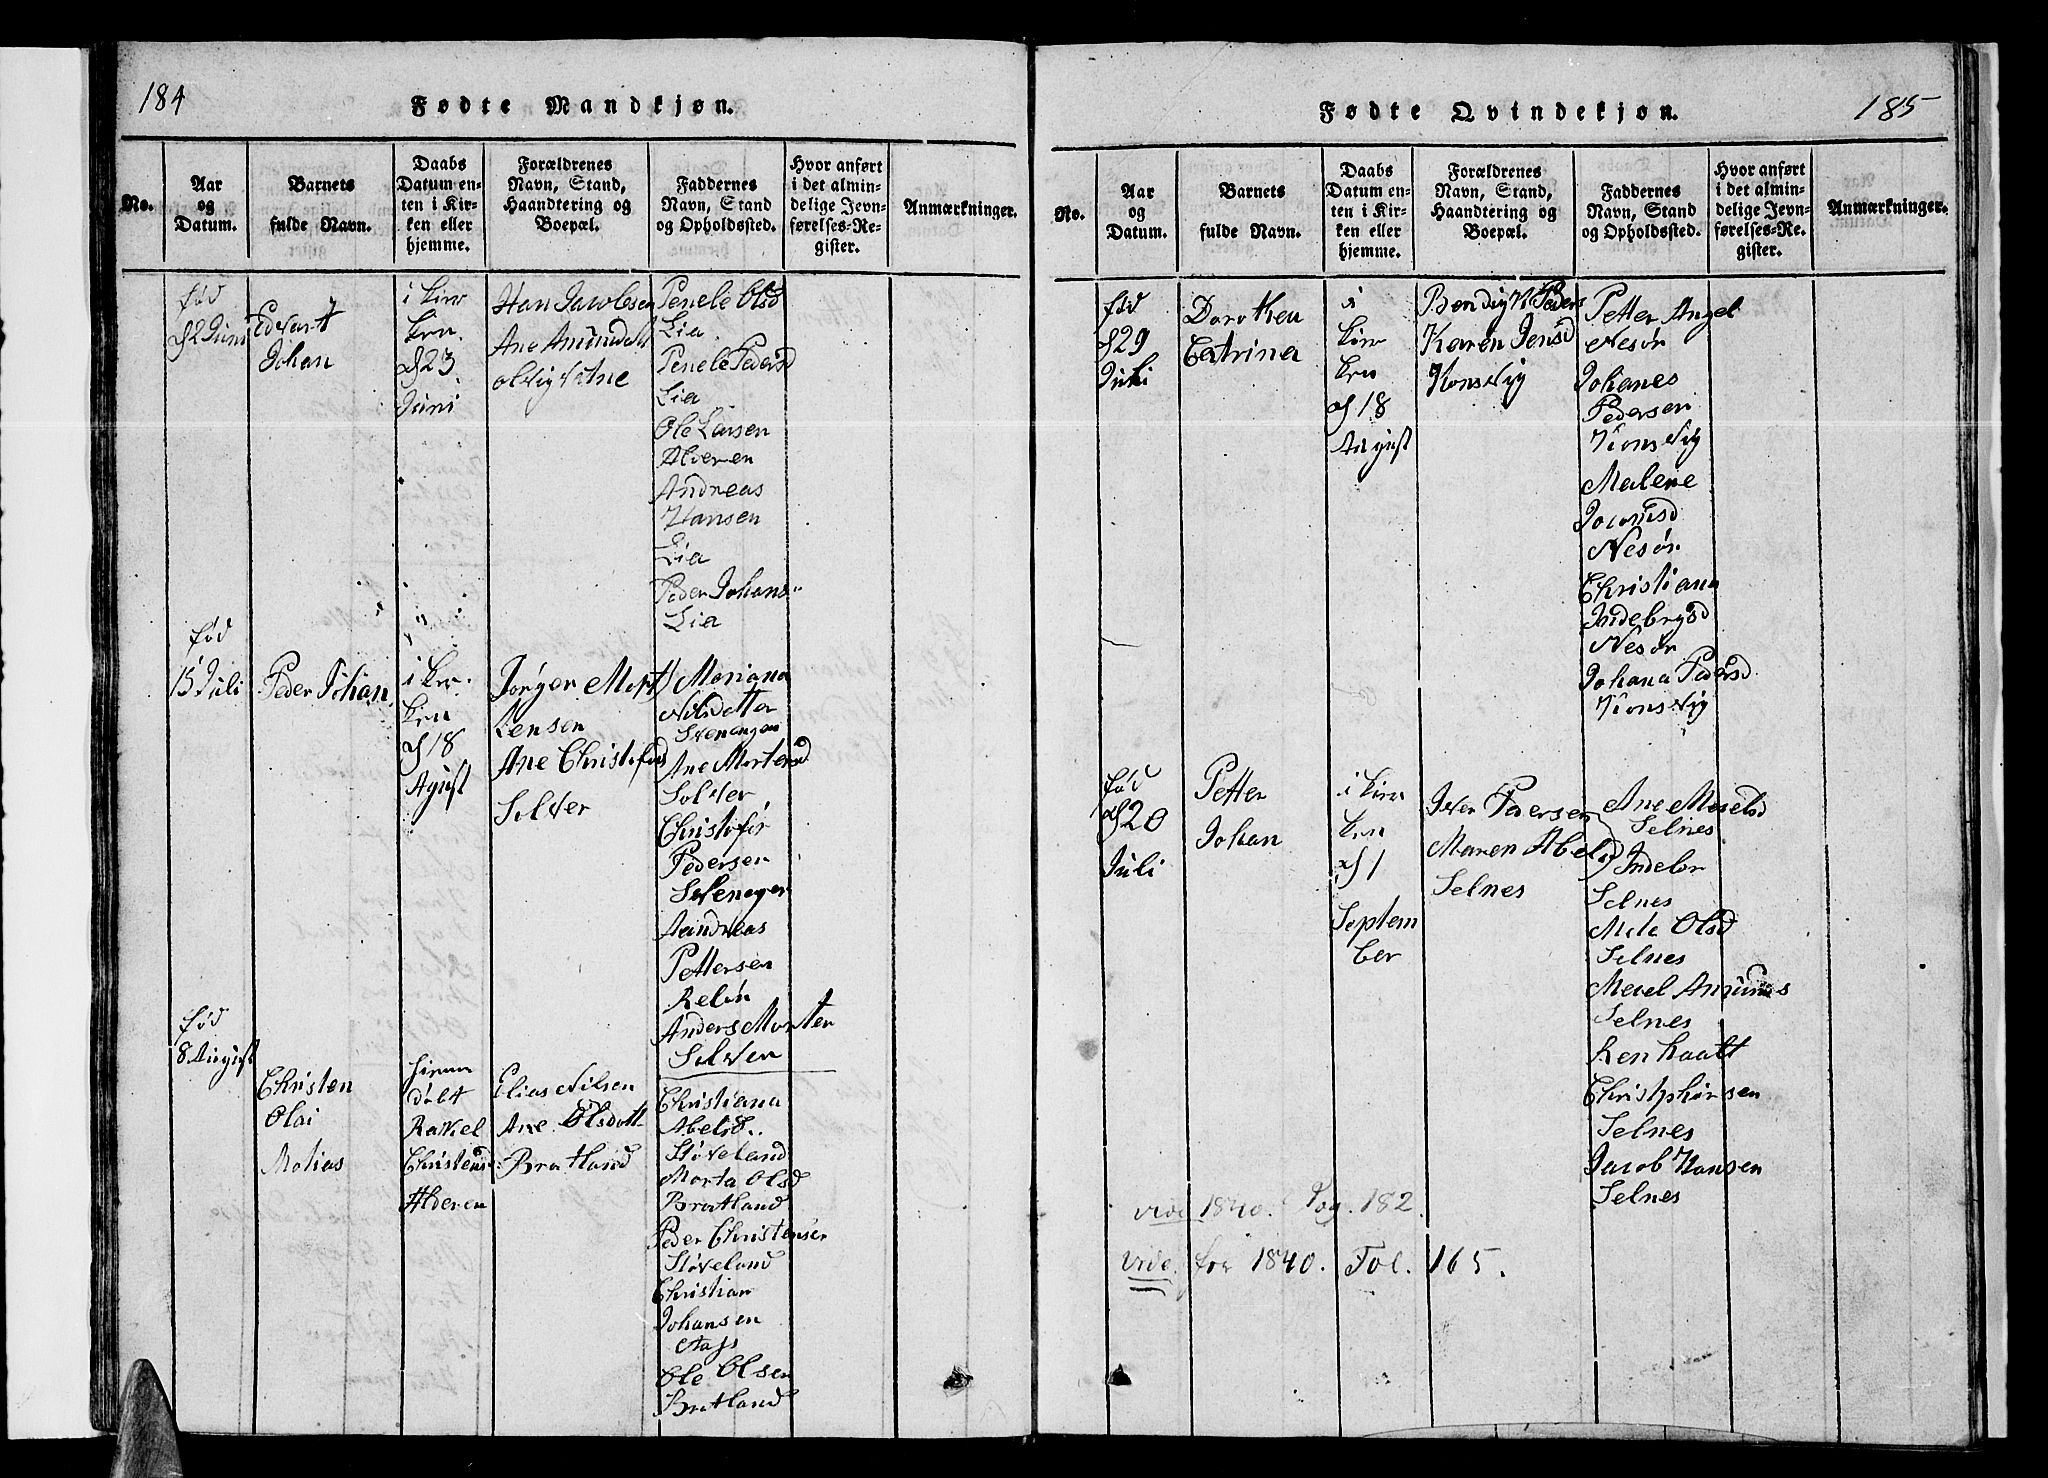 184
Fødte Mandkjøn.
No.
Aar
og
Datum.
Barnets
fulde Navn.
Daabs
Datum en-
ten i Kir-
ken eller
hjemme.
Forældrenes
Navn, Stand,
Haandtering og
Boepæl.
Faddernes
Navn, Stand
og Opholdssted.
Hvor anført
i det almin-
delige Jevn-
førelses-Re-
gister.
Anmærkninger.
fød
d 2 Juni
Edvart
Johan
i kirv
ken
d 23
Juni
Han Jacobsen
Ane Amundsd
Penele Olsd
Lia
Penele Pedersd
Lia
Ole Larsen
Alderen
Andreas
Hansen
Lia
Peder Johans
Lia
fød
15 Juli
Peder Johan
i kir
ken
d 18
Agust
Jørger Mort
Lensen
Ane Christofsd
Solver
Mariana
Nilsdotter
Svenanger
Ane Mortensd
Solver
Christofer
Pedersen
Svenager
Aandreas
Pettersen
Reløn
Anders Morten
Solver
fød
8 August
Christen
Olai
Matias
hiem
døbt
Rakel
Christens
Alderen
Elias Nilsen
Ane Olsdott
Bratland
Christiana
Abelsd
Støveland
Marta Olsd
Bratland
Peder Christenser
Støveland
Christian
Johansen
Ole Olsen
Bratland
185
Fødte Qvindekjøn.
No.
Aar
og
Datum.
Barnets
fulde Navn.
Daabs
Datum en-
ten i Kir-
ken eller
hjemme.
Forældrenes
Navn, Stand,
Haandtering og
Boepæl.
Faddernes
Navn, Stand
og Opholdssted.
Hvor anført
i det almin-
delige Jevn-
førelses-Re-
gister.
Anmærkninger.
fød
d 29
Juli
Dorothea
Catrina
i
kirv
ken
d 18
August
Bendigt Peders
Karen Jensd
Konsvig
Petter Angel
Nesør
Johanes
Pedersen
Konsvig
Malene
Nesør
Christiana
Indebrigsd
Nesør
Johana Pedersd
Konsvig
fød
d 20
Juli
Petter
Johan
i kirv
ken
d 1
Septem
ber
Iver Pedersen
Maren Abelsd
Selnes
Ane
Selnes
Indebr
Selnes
Mele Olsd
Selnes
Merel Amunds
Selnes
Renhaalt
Christphørsen
Selnes
Jacob Hansen
Selnes
vide 1840. Pag. 182.
Vide for 1840. Fol. 165.